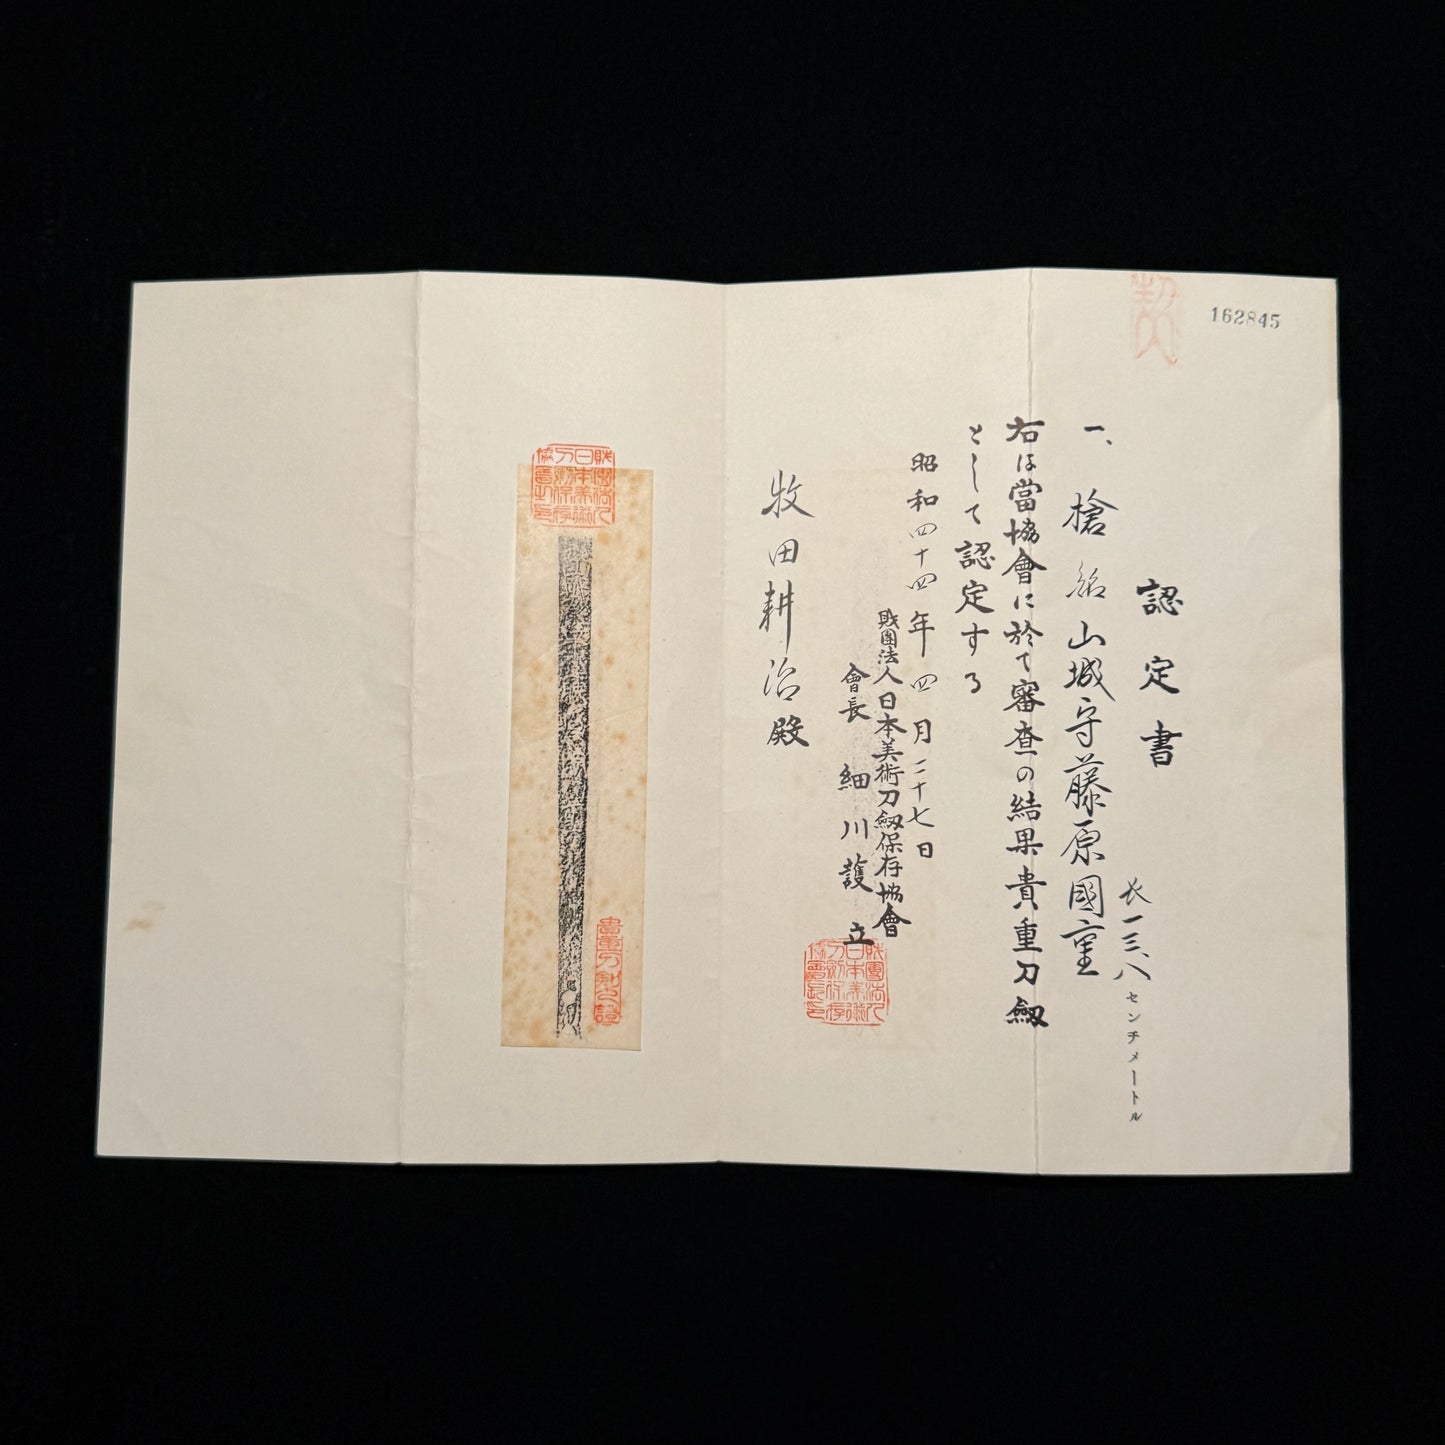 162845
認定書
一、槍 銘 山城守藤原國重
長一三、八センチメートル
右は當協會に於て審査の結果貴重刀劔
として認定する
昭和四十四年四月二十七日
財團法人日本美術刀劔保存協會
會長 細川護立
牧田耕治殿